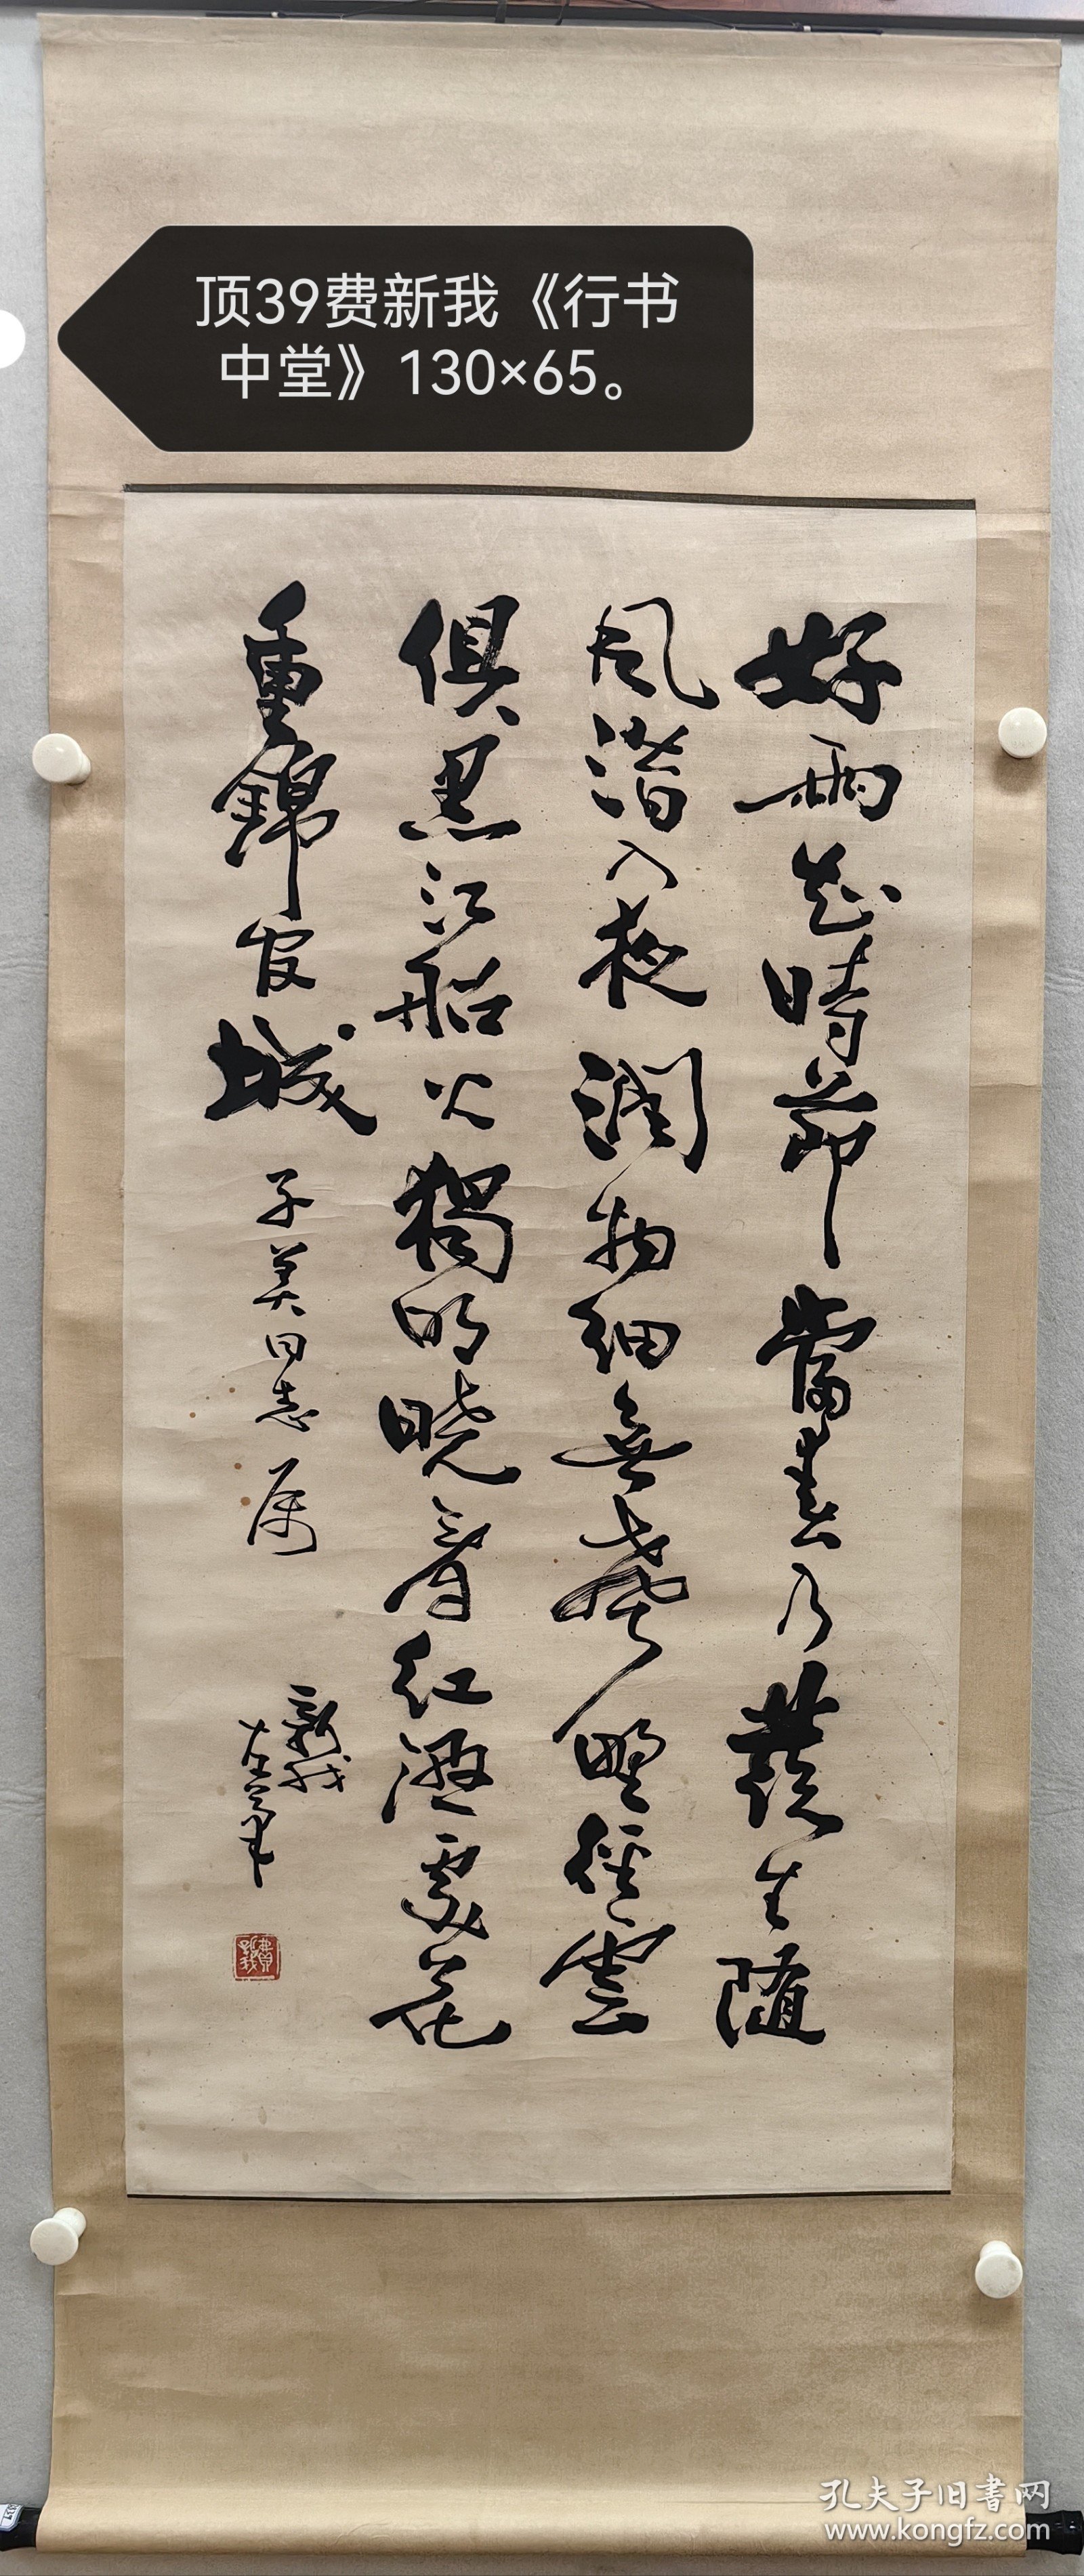 顶39费新我《行书
中堂》130×65。
好雨知時節當春乃發生随
風潜入夜潤物细無聲野径雲
俱黑江船火獨明晓看红濕處花
重錦官城
子美同志属
新我
左筆
費新我
孔夫子旧書网
www.kongfz.com